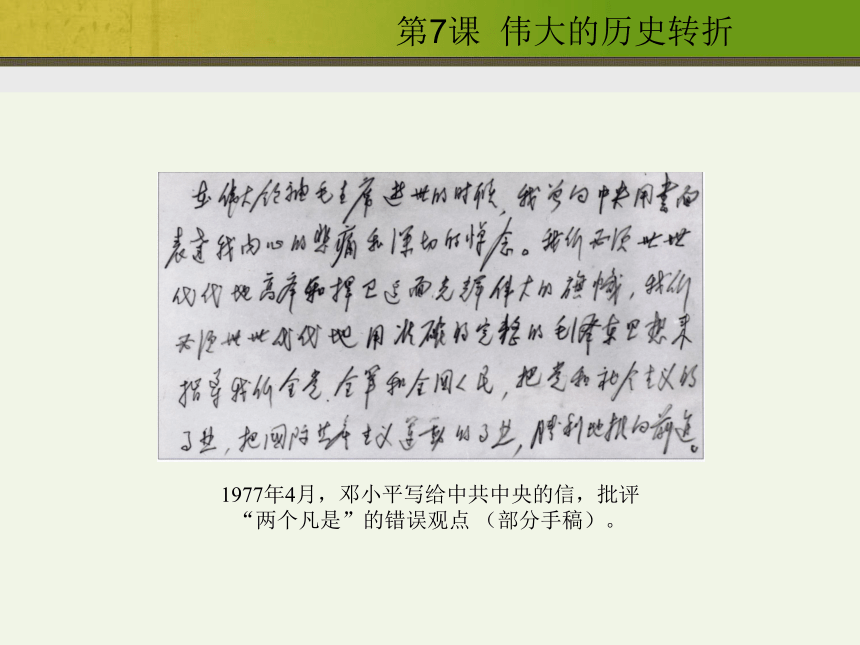 第7课 伟大的历史转折
在伟大领袖毛主席逝世的时候，我曾向中央用书面
表达我内心的悲痛和深切的悼念。我们必须世世
代代地高举和捍卫这面光辉伟大的旗帜，我们
必须世世代代地用准确的完整的毛泽东思想来
指导我们全党、全军和全国人民，把党和社会主义的
事业，把国际共产主义运动的事业，胜利地推向前进。
1977年4月，邓小平写给中共中央的信，批评
“两个凡是”的错误观点 （部分手稿）。